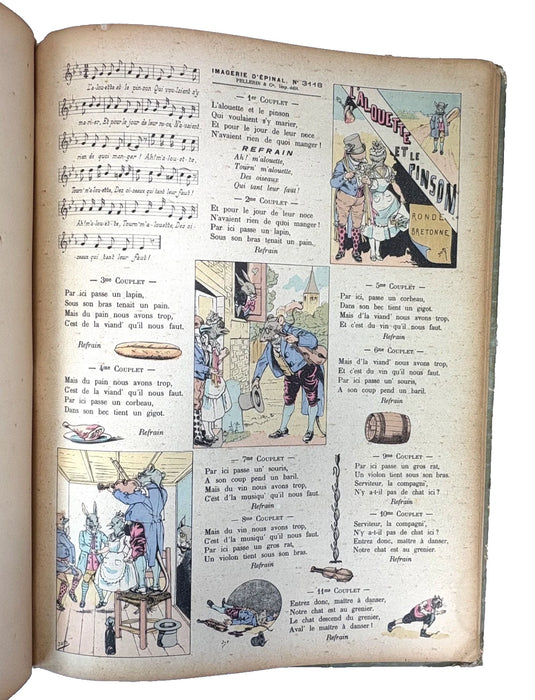 IMAGERIE D'ÉPINAL, No 3118
PELLERIN & Cie, imp.-édit.
L'a-lou-ette et le pin-son Qui vou-laient s'y
ma-ri-er, Et pour le jour de leur no-ce N'a-vaient
rien de quoi man-ger! Ah! m'a-lou-et-te,
Tourn' m'a-lou-et-te, Des oi-seaux qui tant leur faut!
Ah! m'a-lou-et-te, Tourn' m'a-lou-ette, Des oi-
seaux qui tant leur faut!
— 1er COUPLET —
L'alouette et le pinson
Qui voulaient s'y marier,
Et pour le jour de leur noce
N'avaient rien de quoi manger!
REFRAIN
Ah! m'alouette,
Tourn' m'alouette,
Des oiseaux
Qui tant leur faut!
— 2me COUPLET —
Et pour le jour de leur noce
N'avaient rien de quoi manger!
Par ici passe un lapin,
Sous son bras tenait un pain.
Refrain
L'ALOUETTE
ET LE
PINSON
RONDE
BRETONNE
— 3me COUPLET —
Par ici passe un lapin,
Sous son bras tenait un pain.
Mais du pain nous avons trop,
C'est de la viand' qu'il nous faut.
Refrain
— 4me COUPLET —
Mais du pain nous avons trop,
C'est de la viand' qu'il nous faut.
Par ici passe un corbeau,
Dans son bec tient un gigot.
Refrain
— 5me COUPLET —
Par ici passe un corbeau,
Dans son bec tient un gigot!
Mais d'la viand' nous avons trop,
Et c'est du vin qu'il nous faut.
Refrain
— 6me COUPLET —
Mais d'la viand' nous avons trop,
Et c'est du vin qu'il nous faut.
Par ici passe un' souris,
A son coup pend un baril.
Refrain
— 7me COUPLET —
Par ici passe un' souris,
A son coup pend un baril.
Mais du vin nous avons trop,
C'est d'la musiqu' qu'il nous faut.
Refrain
— 8me COUPLET —
Mais du vin nous avons trop,
C'est d'la musqu' qu'il nous faut.
Par ici passe un gros rat,
Un violon tient sous son bras.
Refrain
— 9me COUPLET —
Par ici passe un gros rat,
Un violon tient sous son bras.
Serviteur, la compagni',
N'y a-t-il pas de chat ici?
Refrain
— 10me COUPLET —
Serviteur, la compagni',
N'y a-t-il pas de chat ici?
Entrez donc, maître à danser,
Notre chat est au grenier.
Refrain
— 11me COUPLET —
Entrez donc, maître à danser,
Notre chat est au grenier.
Le chat descend du grenier,
Aval' le maître à danser!
Refrain